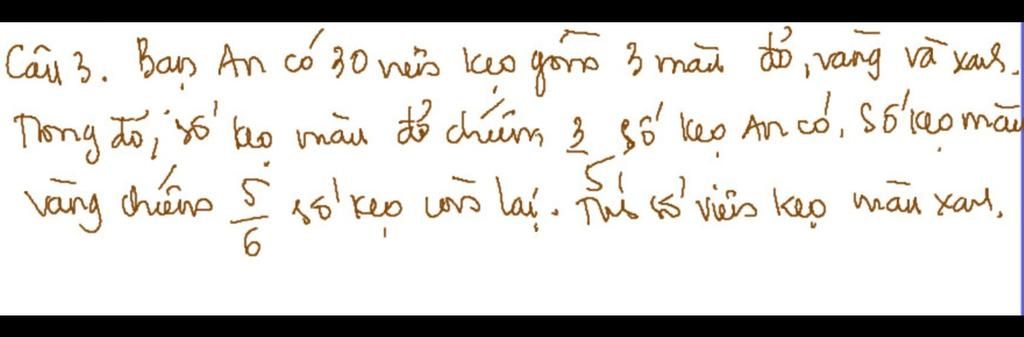 Câu 3. Bạn An có 30 viên kẹo gồm 3 màu đỏ, vàng và xanh.
Trong đó, số kẹo màu đỏ chiếm 3/5 số kẹo An có, số kẹo màu
vàng chiếm 5/6 số kẹo còn lại. Tính số viên kẹo màu xanh.